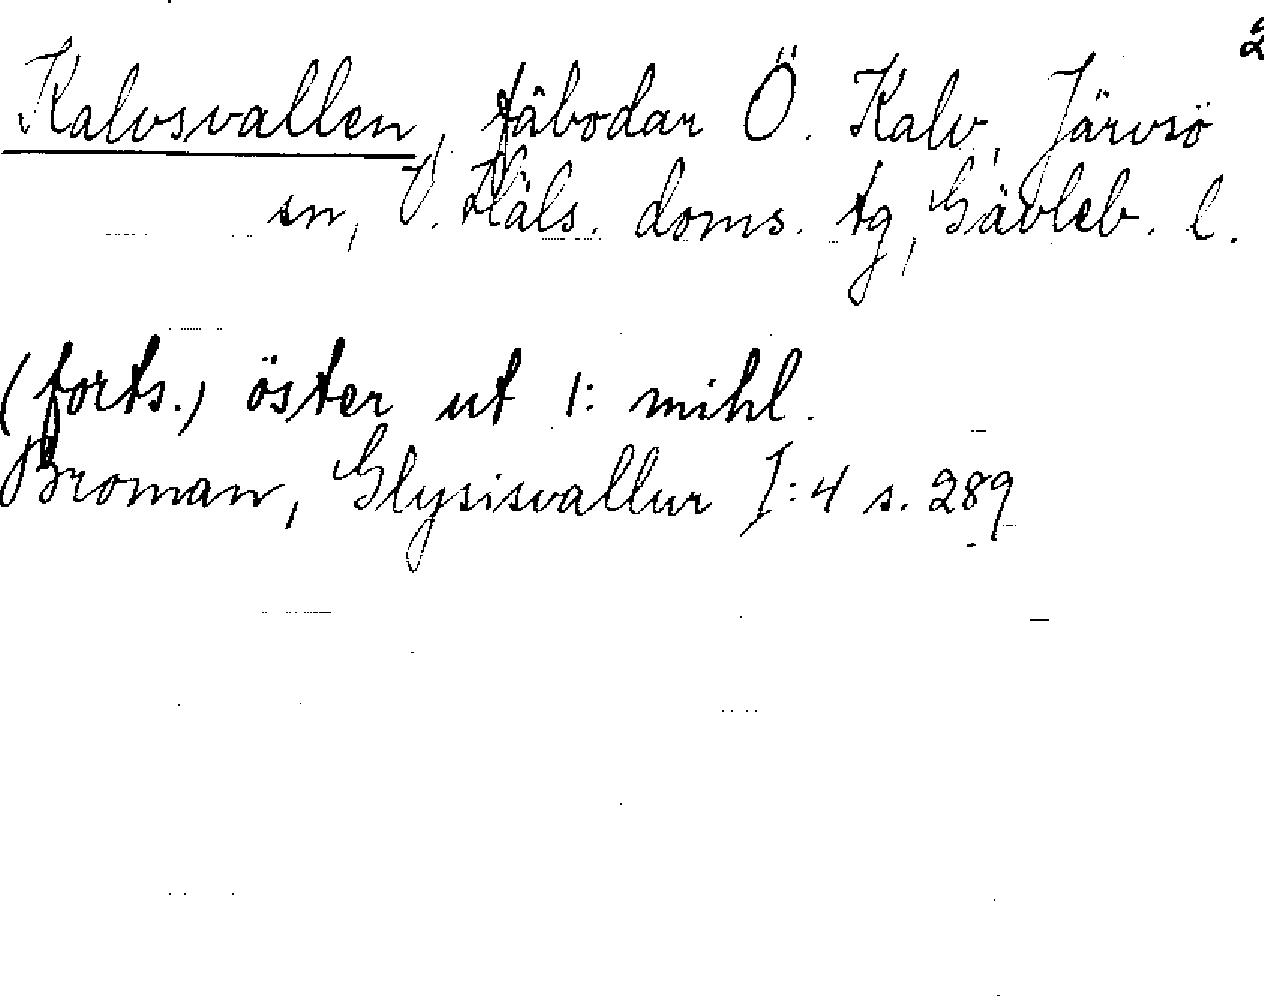 2
Kalvsvallen, fäbodar Ö. Kalv, Järvsö
sn, V. Häls. doms. tg, Gävleb. l.
(forts.) öster ut 1: mihl.
Broman, Glysisvallur I:4 s. 289